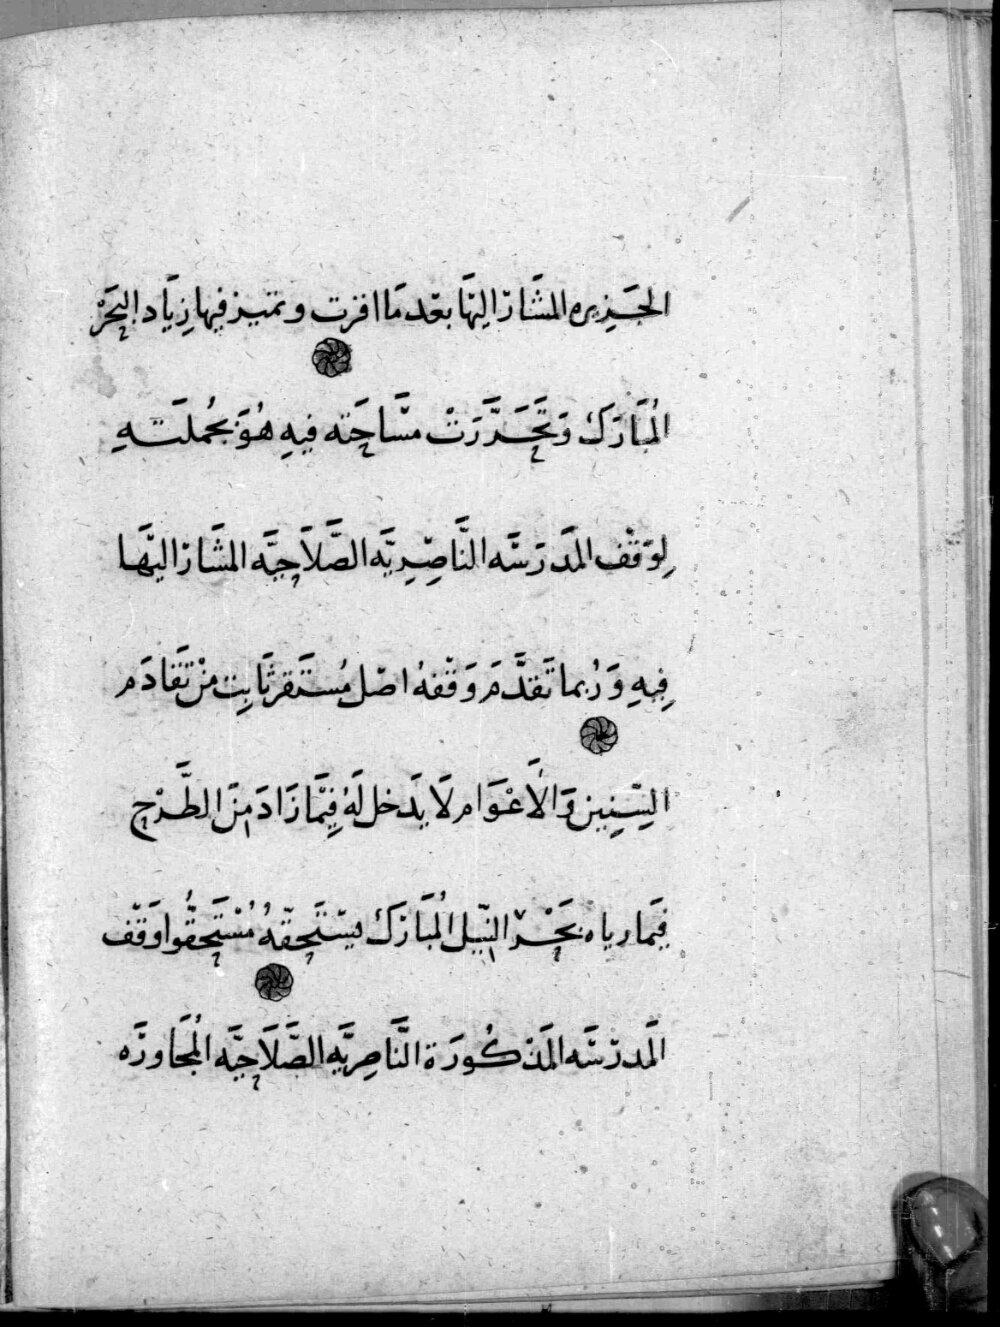 الجَزِيره المشَار اليهَا بعْد مَا افرزت وتميز فيها زِيَاد البَحْر
المُبَارَك وَتحَرَّرَتْ مسَاحَته فيهِ هُوَ بجُملَتهِ
لِوَقْف المَدرَسَه النَّاصِرِيَّه الصَّلاَحِيَّه المشَار اليْهَا
فِيهِ وَرُبما تَقدَّمَ وَقْفهُ اصْل مُستَقر ثَابِت مِنْ تَقَادَم
السِّنِين وَالأَعْوَام لاَ يَدخل لَهُ فِيْمَا زَادَ مِنَ الطَّرْح
فِيَما رياه بَحْر النِّيل المُبَارَك يسْتَحِقّهُ مُسْتَحِقُّوا وَقْف
المَدرسَه المَذكُورَة النَّاصِريَّه الصَّلاَحِيَّه المُجَاورَه